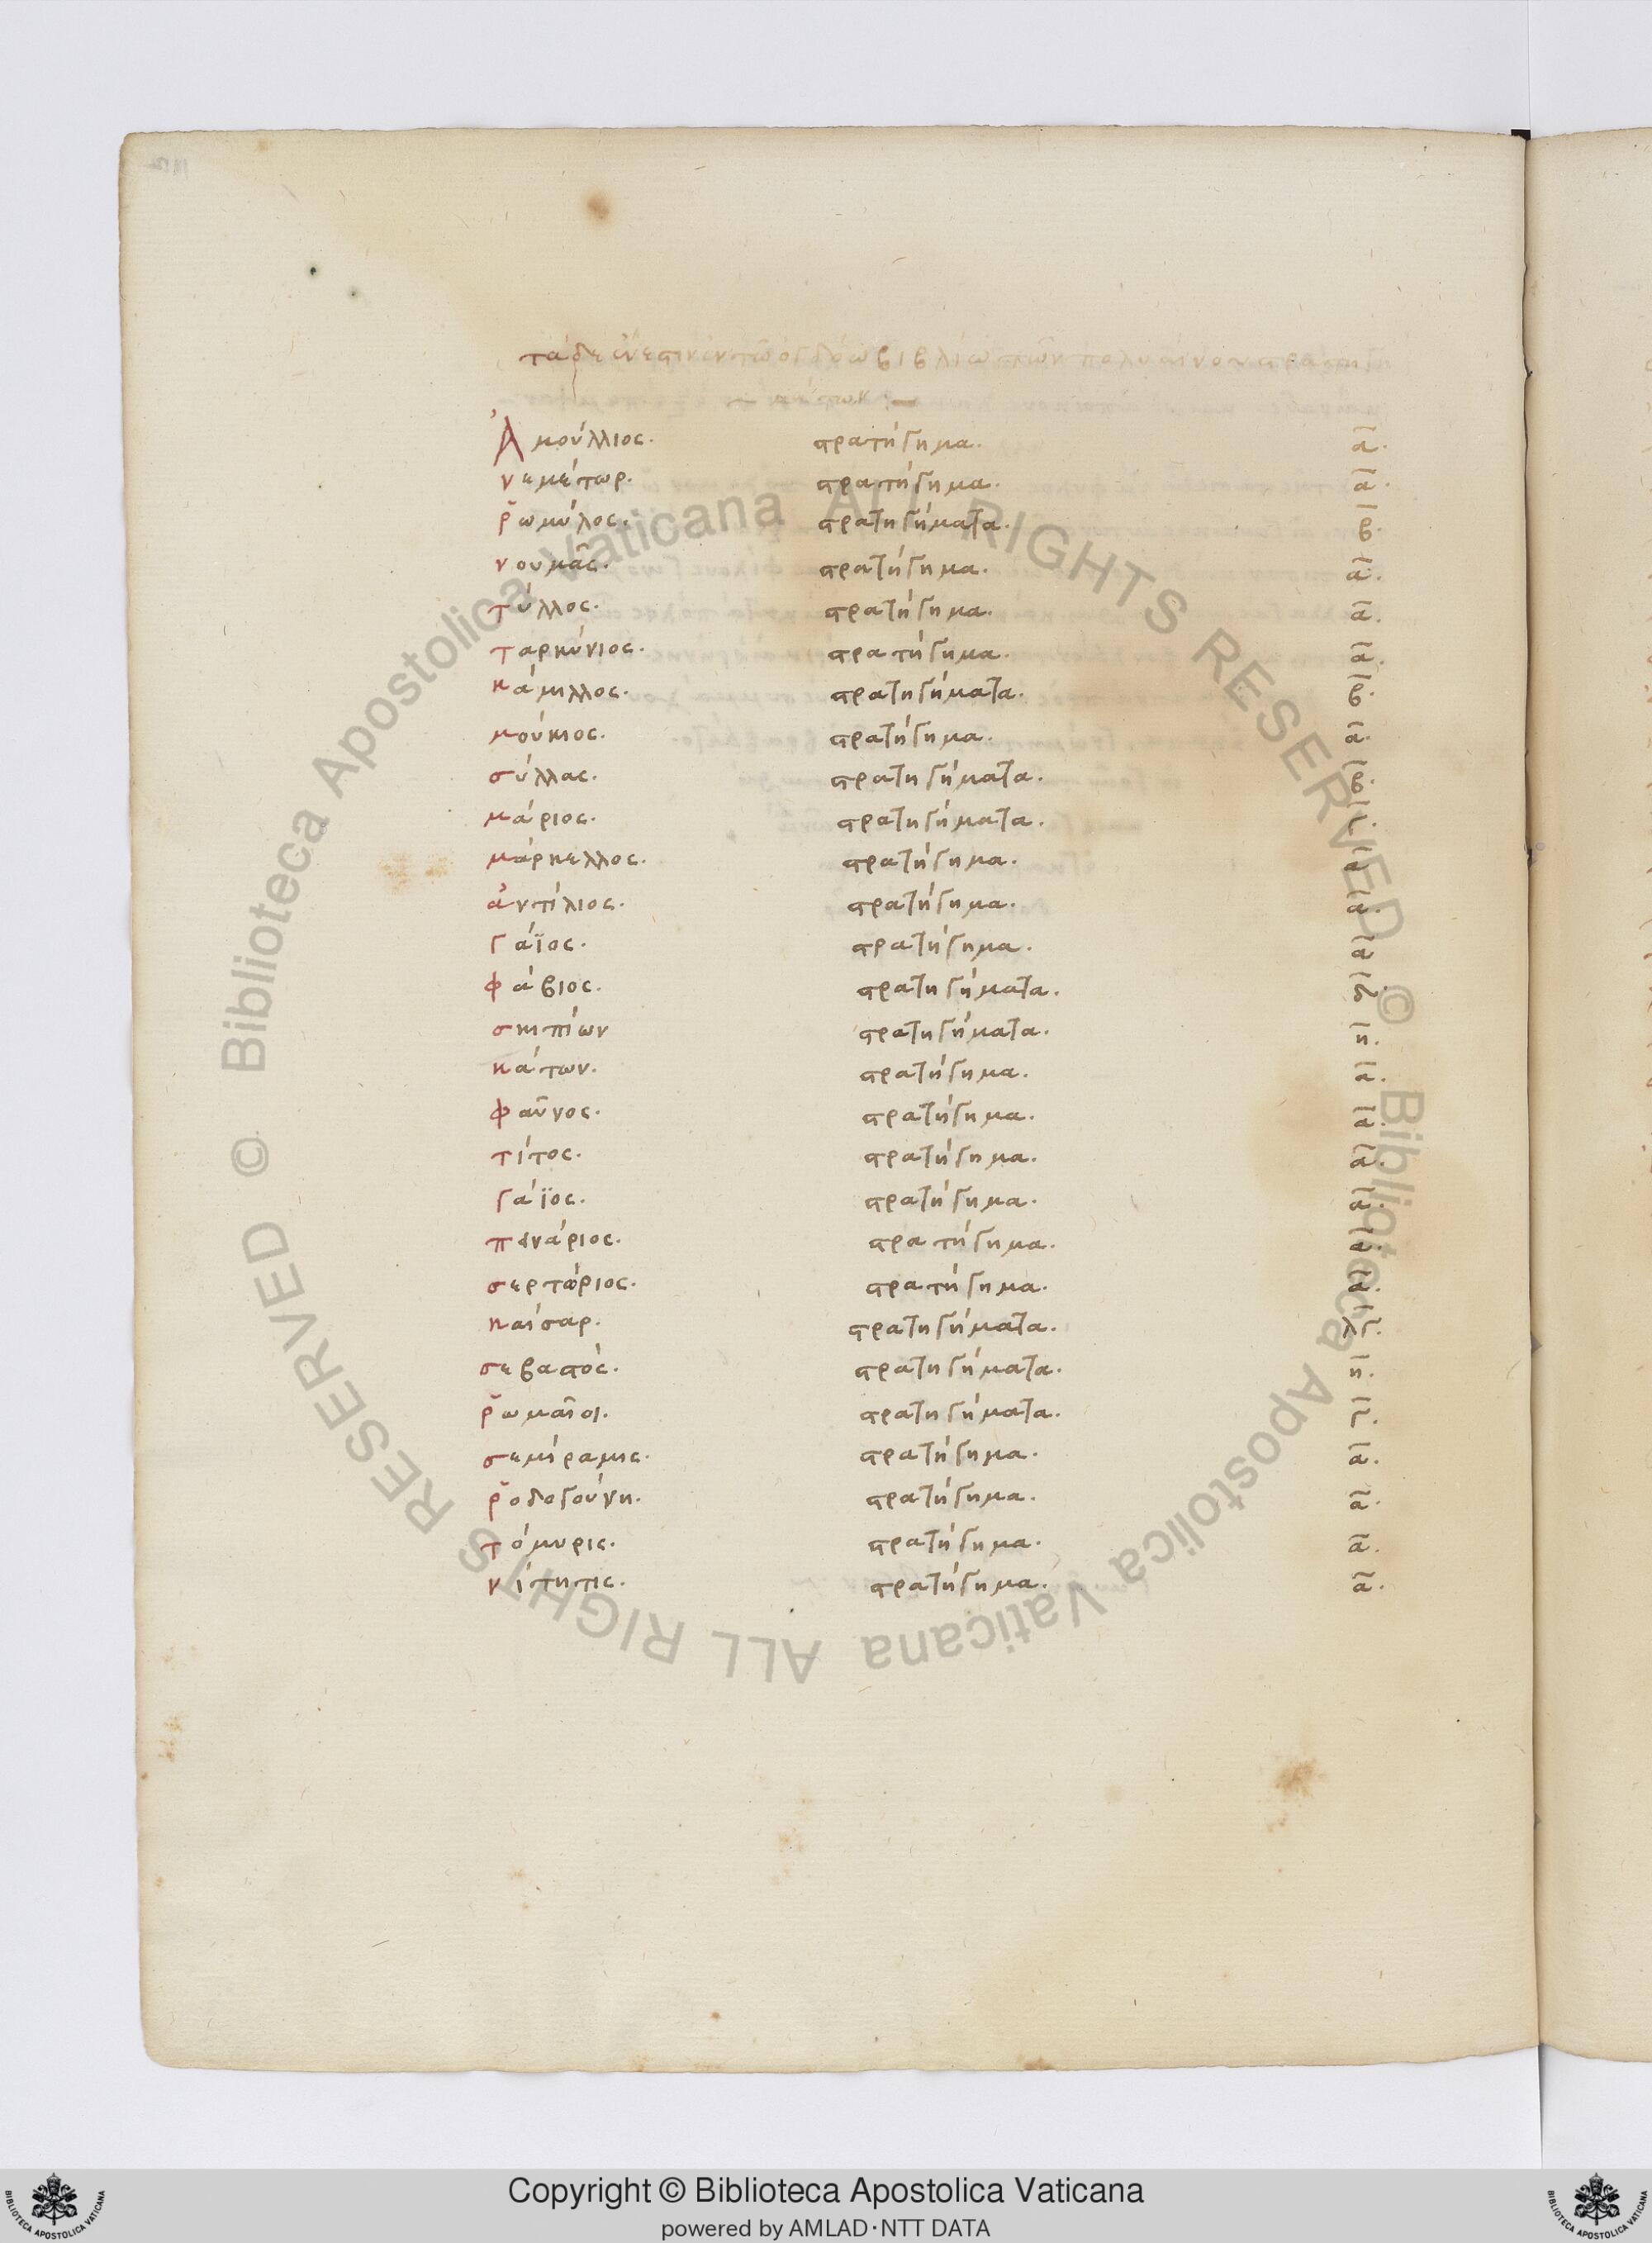 τάδε ἔνεστιν ἐν τῶ ὀγδόω βιβλίω τῶν πολυαίνου στρατηγη
μάτων :—
Ἀμούλλιος. στρατήγημα. α.
νεμέτωρ. στρατήγημα. α.
ῥωμύλος. στρατηγήματα. β.
νουμᾶς. στρατήγημα. α.
τύλλος. στρατήγημα. α.
ταρκύνιος. στρατήγημα. α.
κάμιλλος. στρατηγήματα. β.
μούκιος. στρατήγημα. α.
σύλλας. στρατηγήματα. β.
μάριος. στρατηγήματα. γ.
μάρκελλος. στρατήγημα. α.
ἀντίλιος. στρατήγημα. α.
γάϊος. στρατήγημα. α
φάβιος. στρατηγήματα. γ.
σκιπίων στρατηγήματα. η.
κάτων. στρατήγημα. α.
φαῦνος. στρατήγημα. α.
τίτος. στρατήγημα. α.
γάϊος. στρατήγημα. α.
πινάριος. στρατήγημα. α.
σερτώριος. στρατήγημα. α.
καίσαρ. στρατηγήματα. λγ.
σεβαστός. στρατηγήματα. η.
ῥωμαῖοι. στρατηγήματα. γ.
σεμίραμις. στρατήγημα. α.
ῥοδογούνη. στρατήγημα. α.
τόμυρις. στρατήγημα. α.
νίτητις. στρατήγημα. α.
© Biblioteca Apostolica Vaticana ALL RIGHTS RESERVED
© Biblioteca Apostolica Vaticana ALL RIGHTS RESERVED
Copyright © Biblioteca Apostolica Vaticana
powered by AMLAD·NTT DATA
BIBLIOTECA APOSTOLICA VATICANA
BIBLIOTECA APOSTOLICA VATICANA